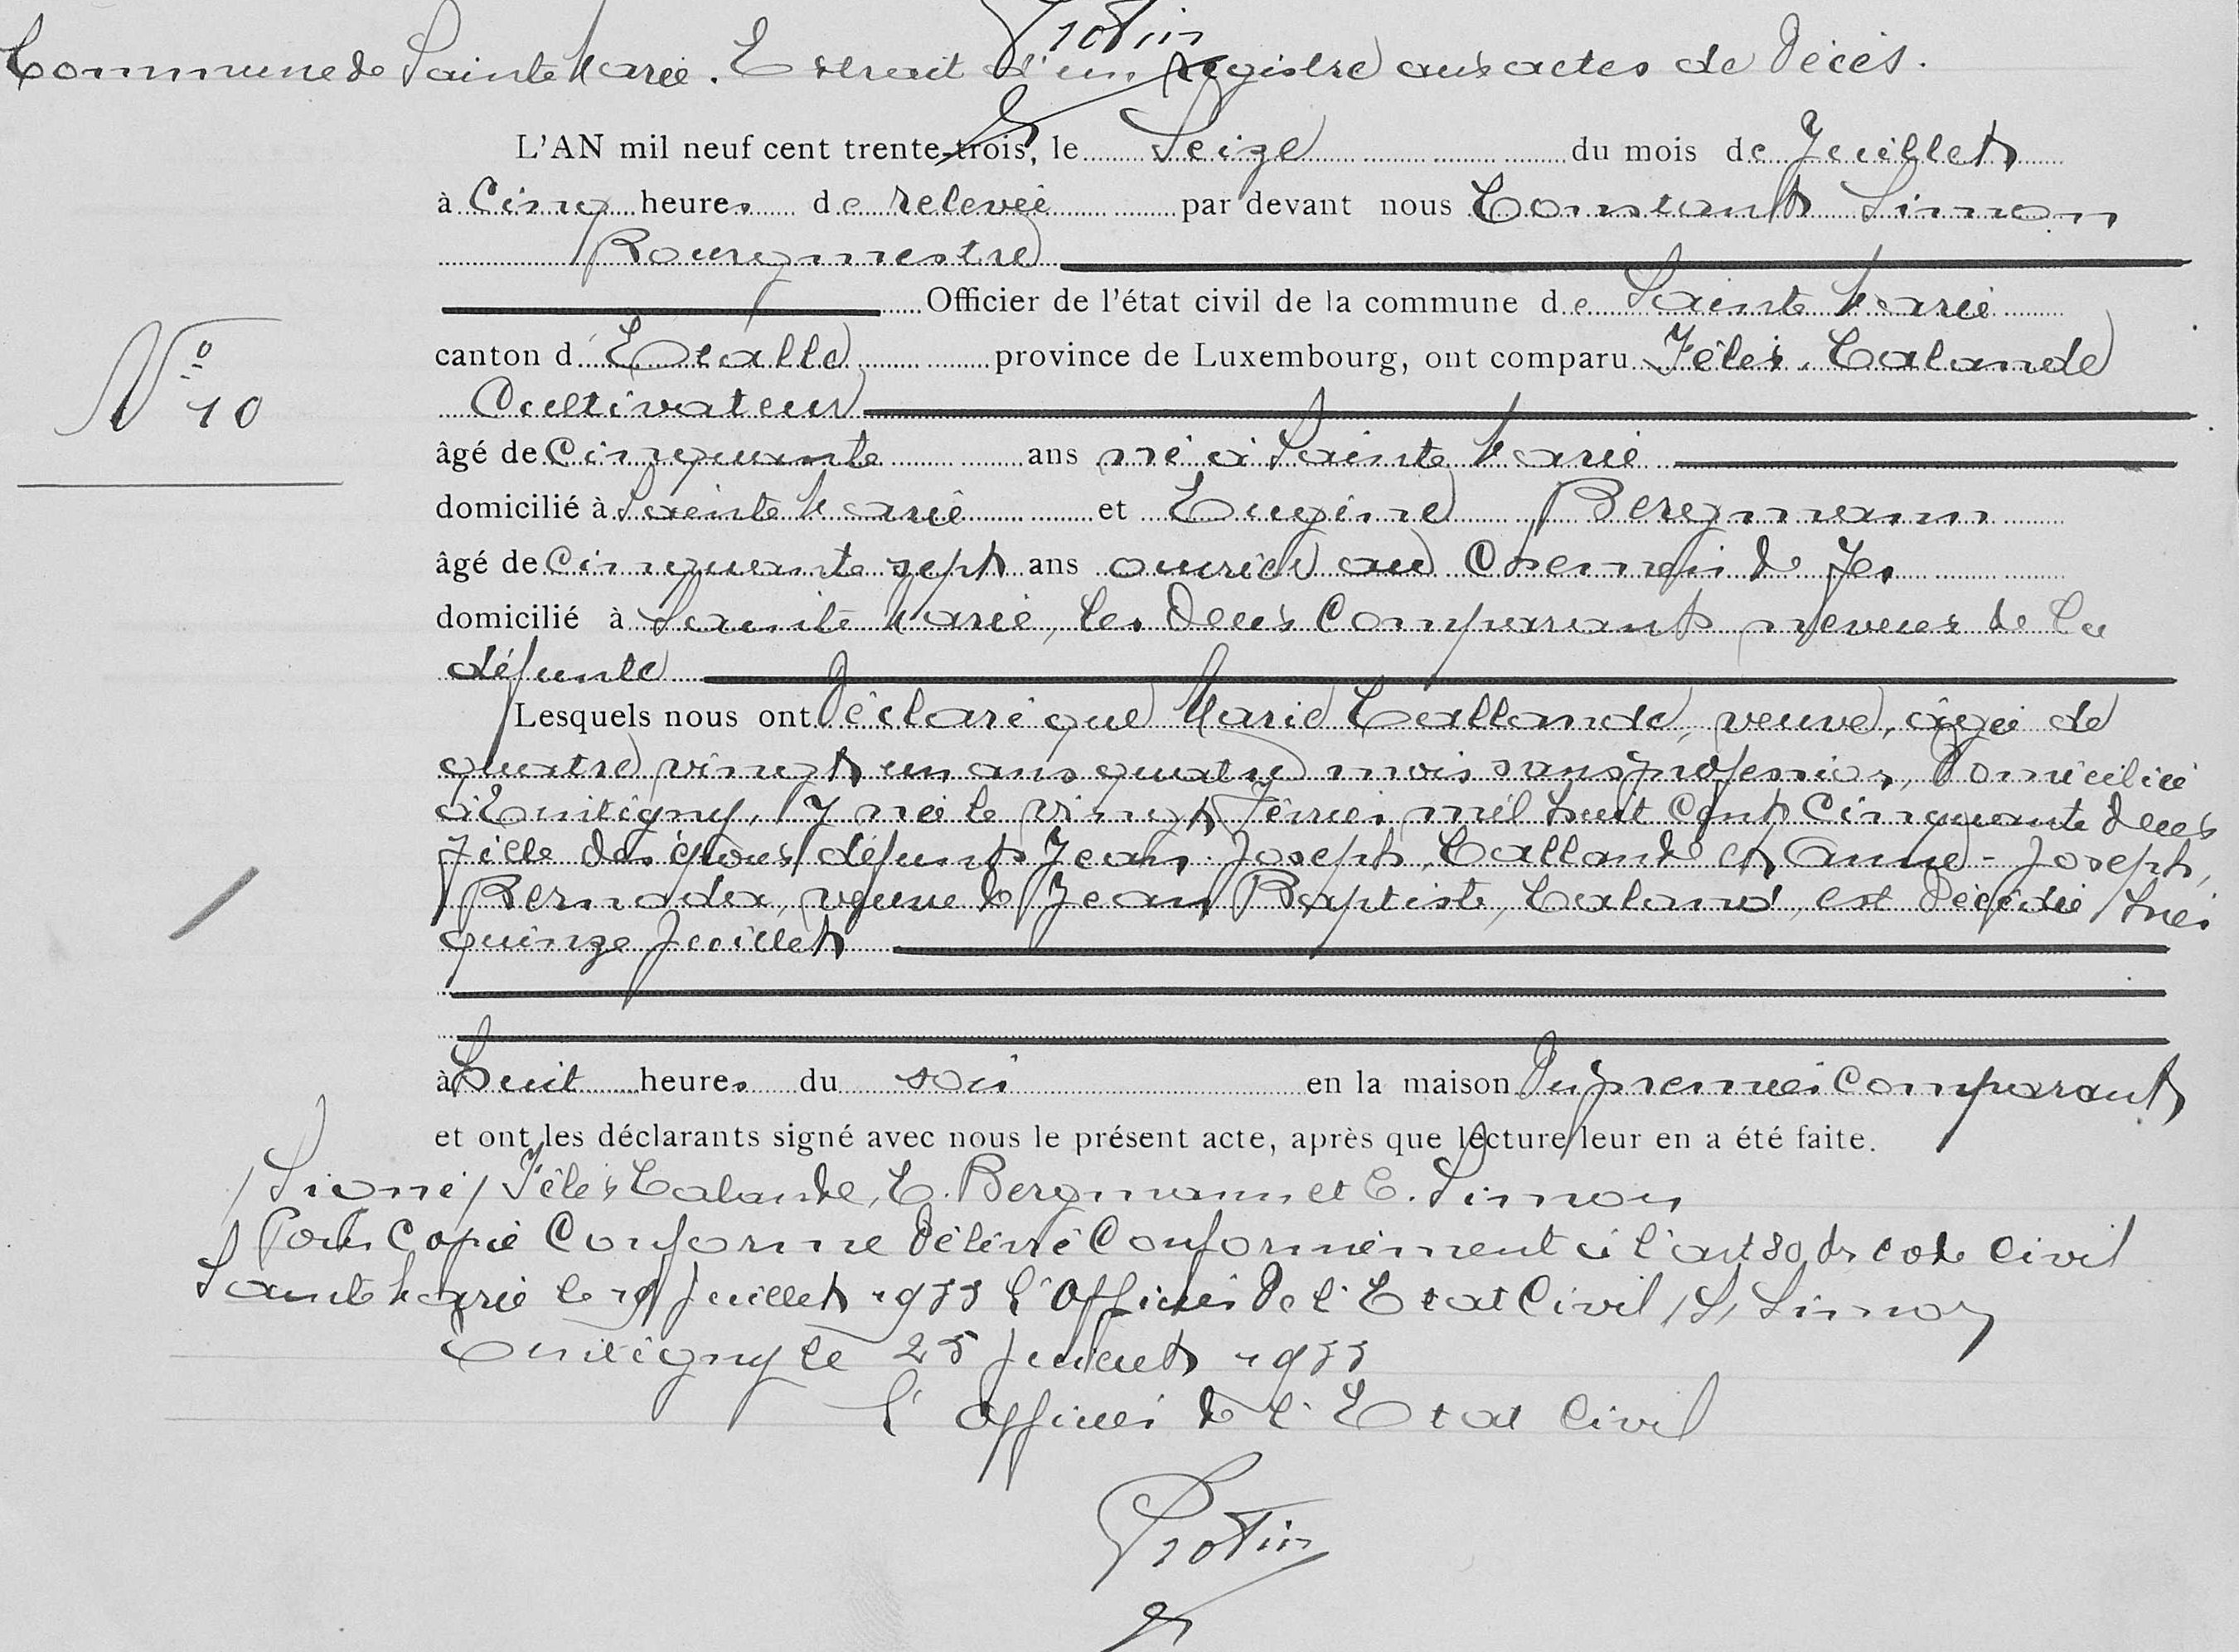 Protin
Commune de Sainte Marie. Extrait d'un registre aux actes de Décès.
L'AN mil neuf cent trente-trois, le Seize du mois de Juillet
à Cinq heures de relevée par devant nous Constant Simon
Bourgmestre
Officier de l'état civil de la commune de Sainte Marie
canton d'Etalle province de Luxembourg, ont comparu Félix Calande
Cultivateur
N° 10
âgé de Cinquante ans né à Sainte Marie
domicilié à Sainte Marie et Eugène Bergmann
âgé de Cinquante sept ans ouvrier au Chemin de Fer
domicilié à Sainte Marie, les deux Comparants neveux de la
défunte
Lesquels nous ont déclaré que Marie Callande, veuve, âgée de
quatre vingt un ans quatre mois sans profession, Domiciliée
à Tintigny, y née le vingt Février mil huit cent Cinquante deux
fille des époux défunts Jean Joseph Calland et Anne-Joseph,
veuve de Jean Baptiste, Caland, est décédée hier
quinze Juillet
à huit heures du soir en la maison Du premier Comparant
et ont les déclarants signé avec nous le présent acte, après que lecture leur en a été faite.
/Signé/ Félix Calande, E. Bergmann et C. Simon
Pour Copie Conforme Délivré Conformément à l'art 80 du code Civil
Sainte Marie le 19 Juillet 1933 l'Officier De l'Etat Civil /S/ Simon
Tintigny le 25 Juillet 1933
l'officier de l'Etat Civil
Protin